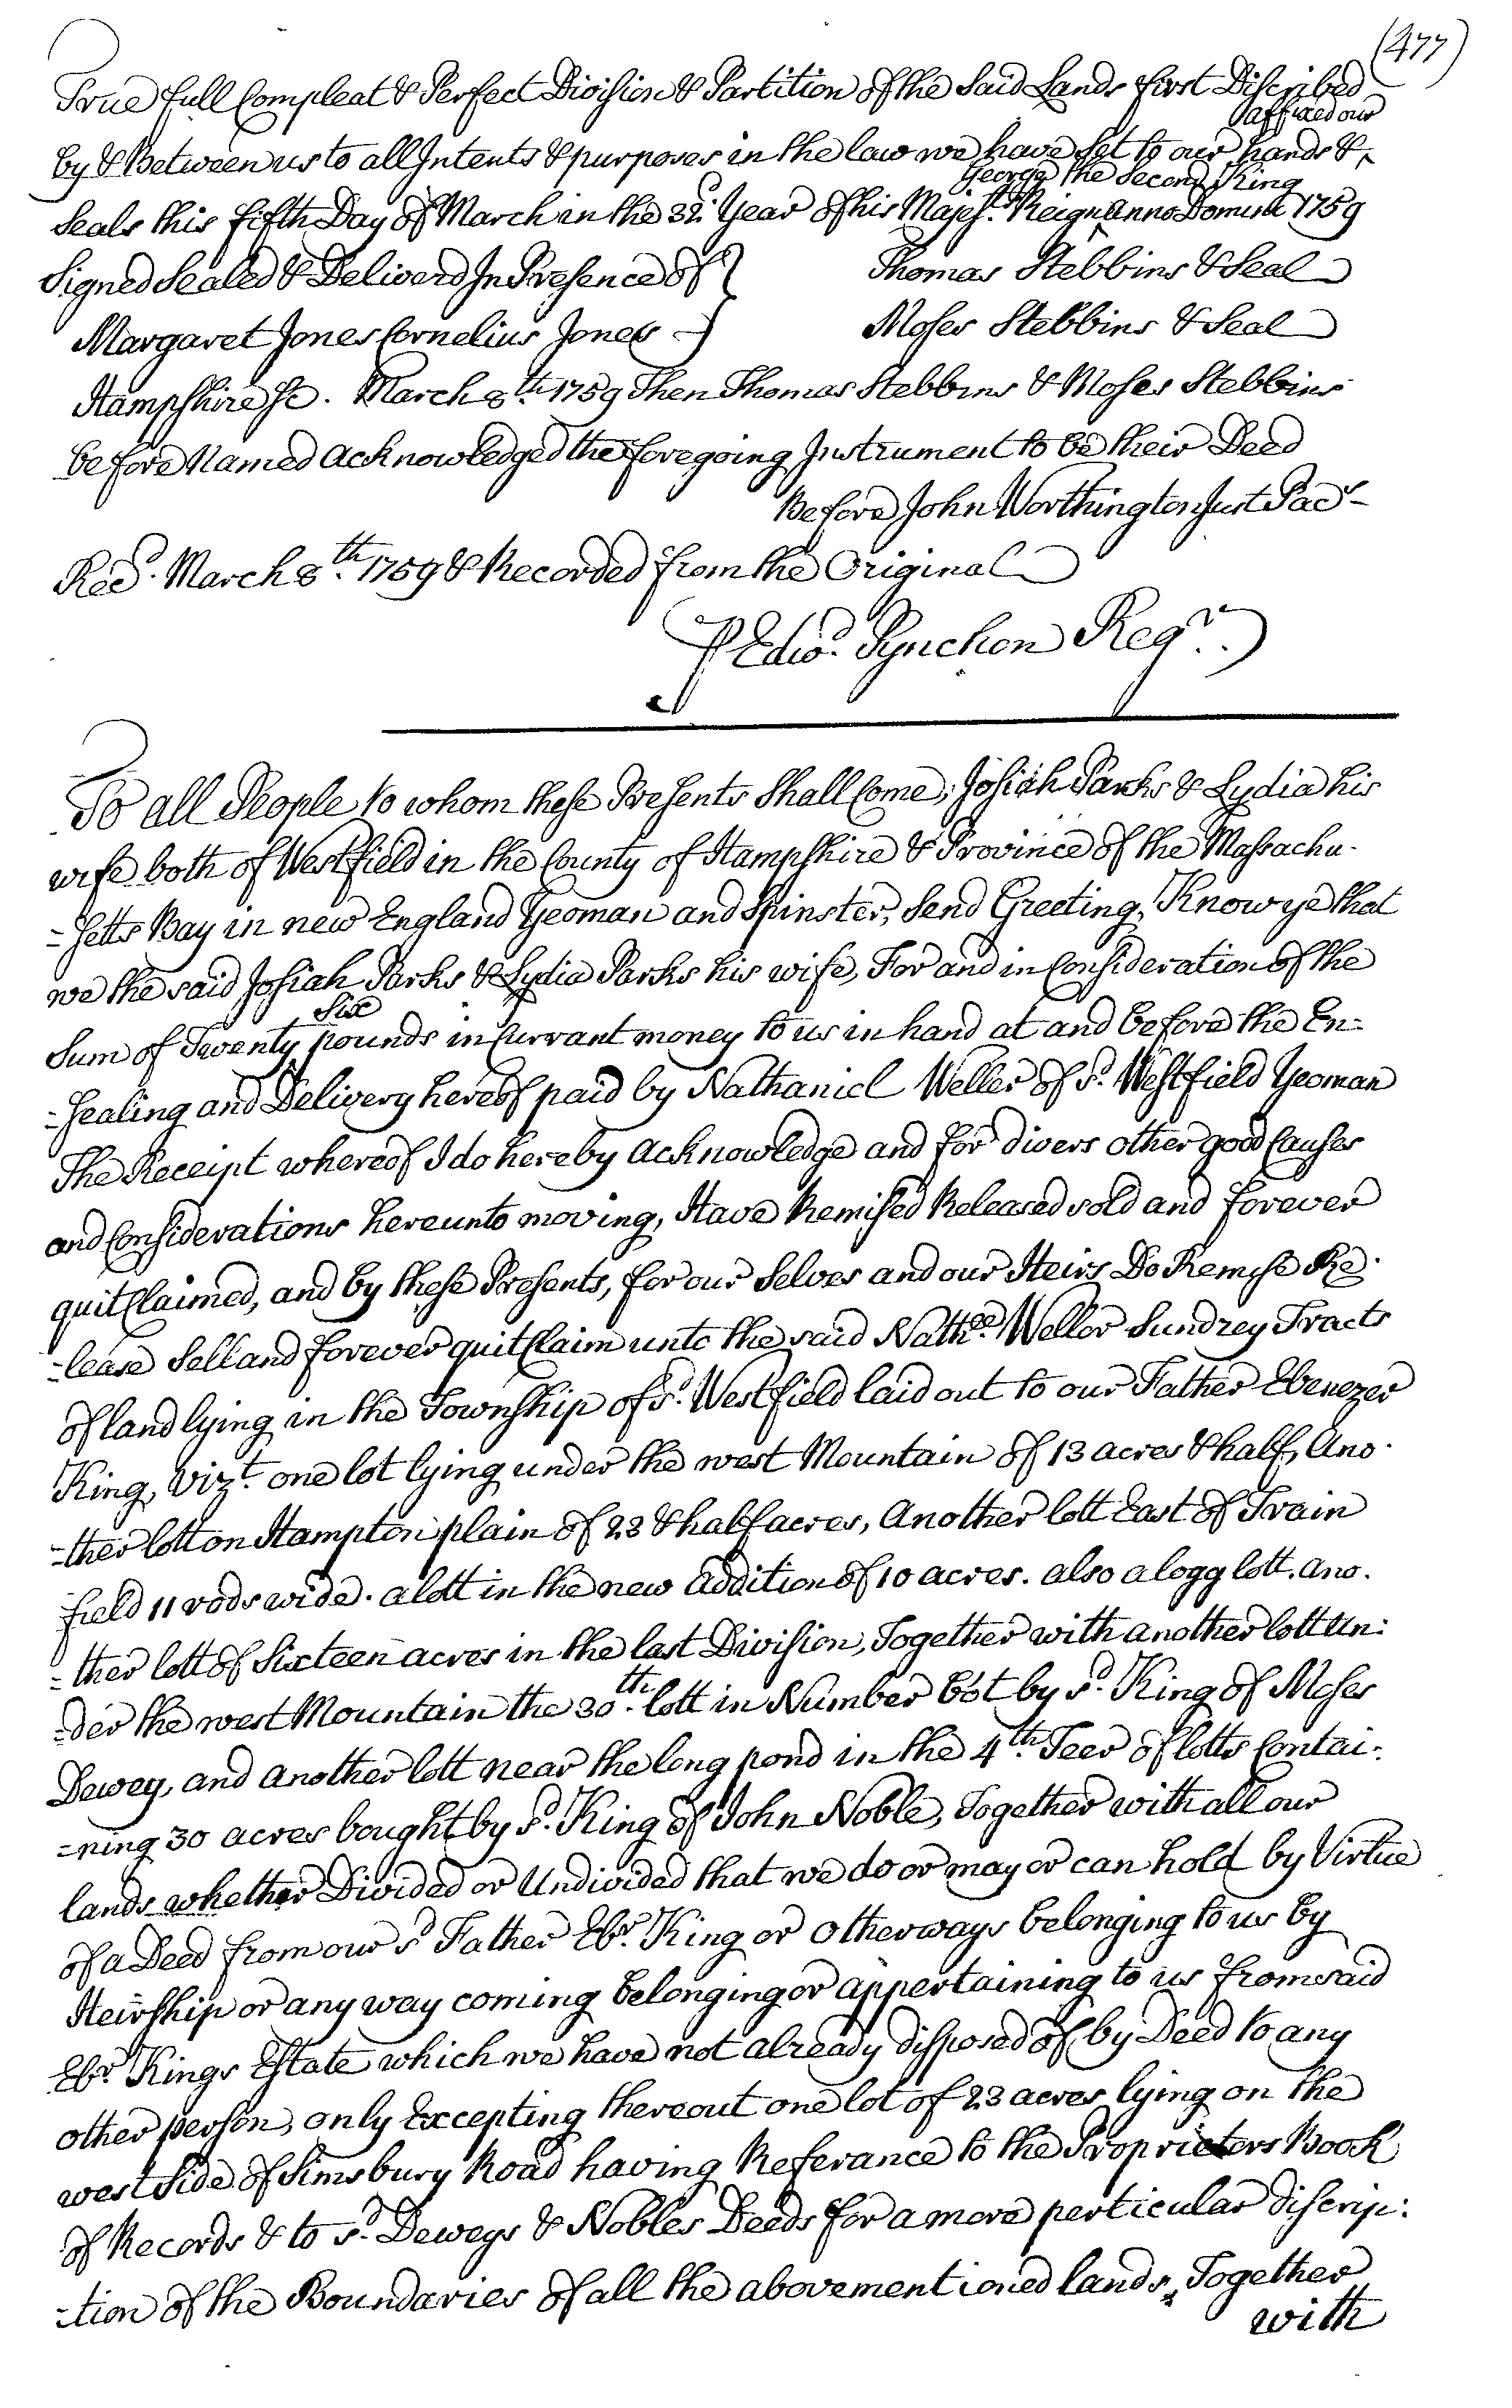 (477)
True full Compleat & Perfect Division & Partition of the Said Lands first Discribed
affixed our
by & Between us to all Intents & purposes in the law we have Set to our hands & ‸
George the Second King
Seals this fifth Day of March in the 32d. Year of his Majests. Reign ‸ Anno Domini 1759
Signed Sealed & Deliverd In Presence of } Thomas Stebbins & Seal
Margaret Jones Cornelius Jones } Moses Stebbins & Seal
Hampshire Sc. March 8th. 1759 Then Thomas Stebbins & Moses Stebbins
before Named acknowledged the foregoing Instrument to be their Deed
Before John Worthington Just Pacs
Recd. March 8th. 1759 & Recorded from the Original
P Edwd. Pynchon Regr.
To all People to whom these Presents Shall Come, Josiah Parks & Lydia his
wife both of Westfield in the County of Hampshire & Province of the Massachu-
=setts Bay in new England Yeoman and Spinster, Send Greeting, Know ye that
we the said Josiah Parks & Lydia Parks his wife, For and in Consideration of the
Six
Sum of Twenty ‸ pounds in Currant money to us in hand at and before the En=
=sealing and Delivery hereof paid by Nathaniel Weller of sd. Westfield Yeoman
The Receipt whereof I do hereby acknowledge and for divers other good Causes
and Considerations hereunto moving, Have Remised Released sold and forever
quit Claimed, and by these Presents, for our Selves and our Heirs Do Remise Re-
-lease Sell and forever quit Claim unto the said Nathll. Weller Sundrey Tracts
of land lying in the Township of sd. Westfield laid out to our Father Ebenezer
King, Vizt. one lot lying under the west Mountain of 13 acres & half, Ano-
=ther lott on Hampton plain of 23 & half acres, Another lott East of Train
field 11 rods wide. a lott in the new addition of 10 acres. also a logg lott. ano-
=ther lott of Sixteen acres in the last Division, Together with another lott un:
=der the west Mountain the 30th. lott in Number bot by sd. King of Moses
Dewey, and another lott near the long pond in the 4th. Teer of lotts Contai-
=ning 30 acres bought by sd. King of John Noble, Together with all our
lands whether Divided or Undivided that we do or may or can hold by Virtue
of a Deed from our sd Father Ebr. King or otherways belonging to us by
Heirship or any way coming belonging or appertaining to us from said
Ebr. Kings Estate which we have not already disposed of by Deed to any
other person, only Excepting thereout one lot of 23 acres lying on the
west Side of Simsbury Road having Referance to the Proprieters Book
of Records & to sd. Deweys & Nobles Deeds for a more perticular discrip:
-tion of the Boundaries of all the abovementioned lands, Together
with